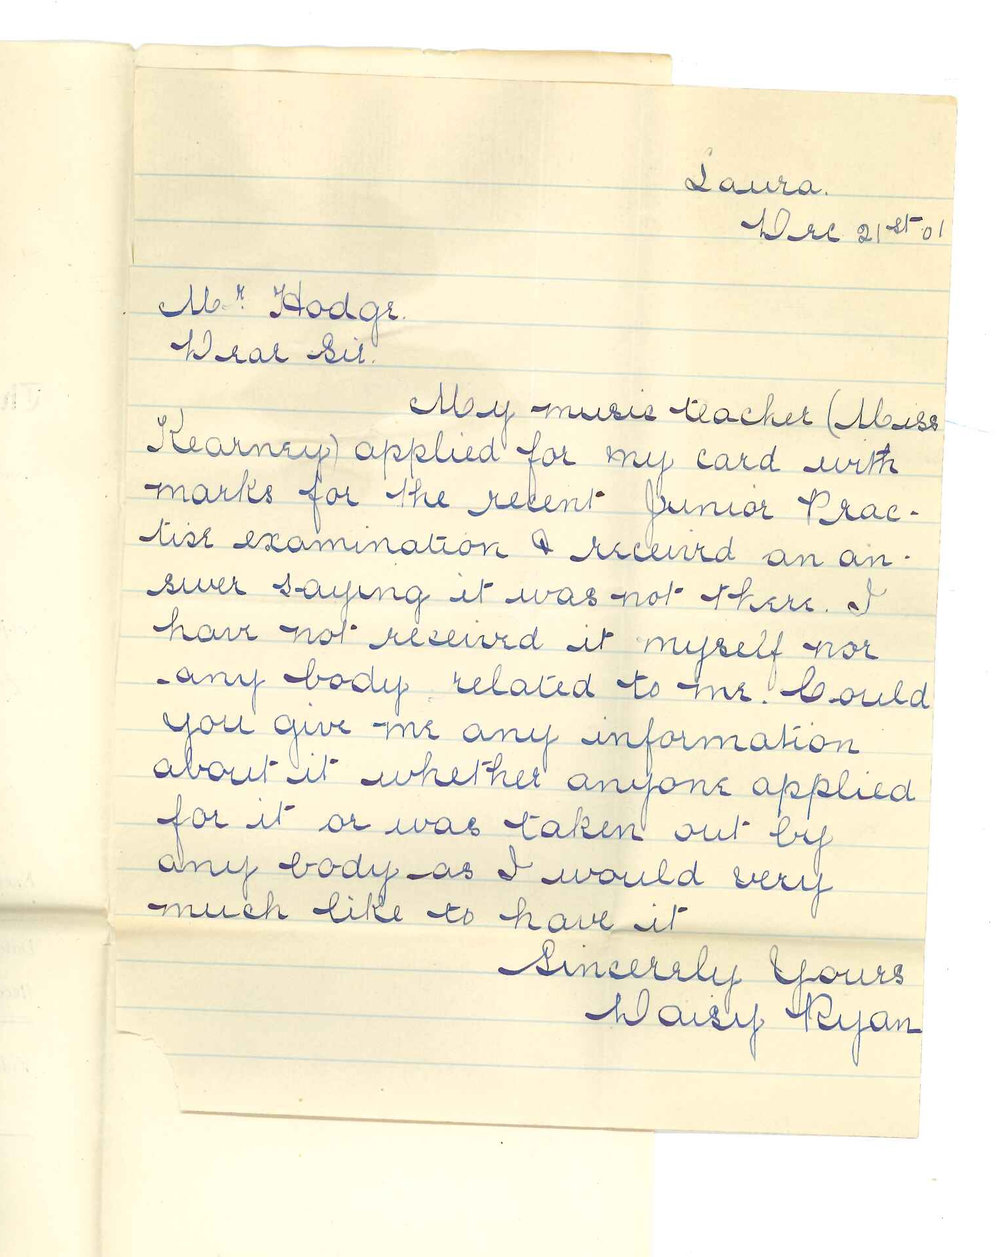 Laura.
Dec 21st 01
Mr. Hodge.
Dear Sir.
My music teacher (Miss
Kearney) applied for my card with
marks for the recent Junior Prac-
tise examination & received an an-
swer saying it was not there. I
have not received it myself nor
any body related to me. Could
you give me any information
about it whether anyone applied
for it or was taken out by
any body as I would very
much like to have it
Sincerely Yours
Daisy Ryan